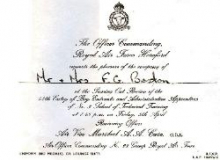 The Officer Commanding,
Royal Air Force Hereford
requests the pleasure of the company of
Mr & Mrs F. G. Baston
at the Passing Out Review of the
Entry of Boy Entrants and Administrative Apprentices
School of Technical Training
at 2.45 p.m. on Friday, April
Reviewing Officer
Air Vice Marshal A. A. Case, C.B.E.
Air Officer Commanding No. 22 Group Royal Air Force
R.S.V.P.